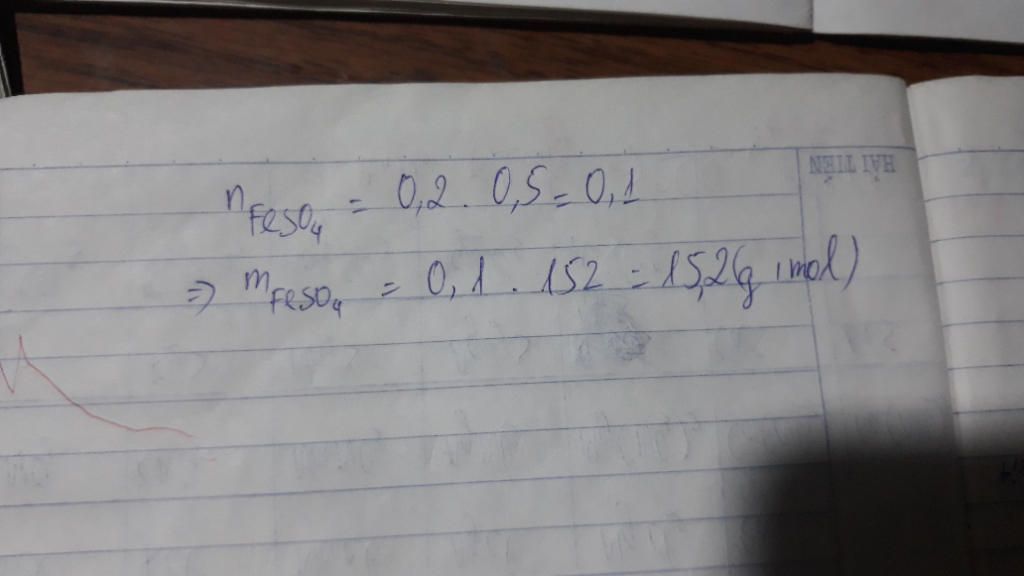 HẢI TIẾN
n FeSO4 = 0,2 . 0,5 = 0,1
=> m FeSO4 = 0,1 . 152 = 15,2 (g / mol)